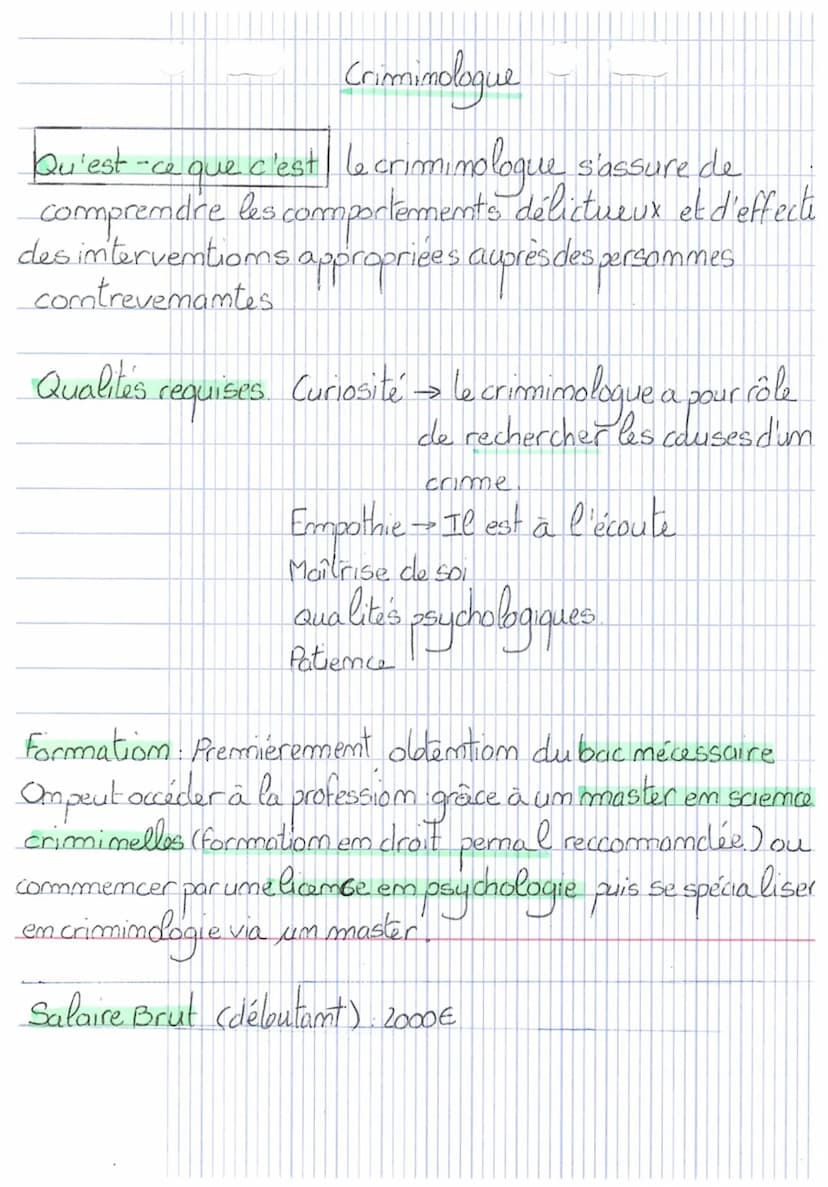 Criminologue
Qu'est-ce que c'est le criminologue s'assure de
comprendre les comportements délictueux et d'effect
des interventions appropriées auprès des personnes
contrevenantes
Qualités requises. Curiosité → le criminologue a pour rôle
de rechercher les causes d'un
crime.
Empathie → Il est à l'écoute
Maîtrise de soi
Qualités psychologiques.
Patience
Formation : Premièrement obtention du bac nécessaire
On peut accéder à la profession grâce à un master en science
criminelles (formation en droit pénal reccomandée.) ou
commencer par une licence en psychologie puis se spécialiser
en criminologie via un master.
Salaire Brut (débutant) : 2000€